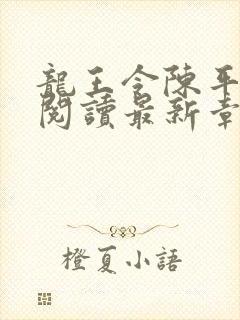 龍王令陳平
閱讀最新章
橙夏小語